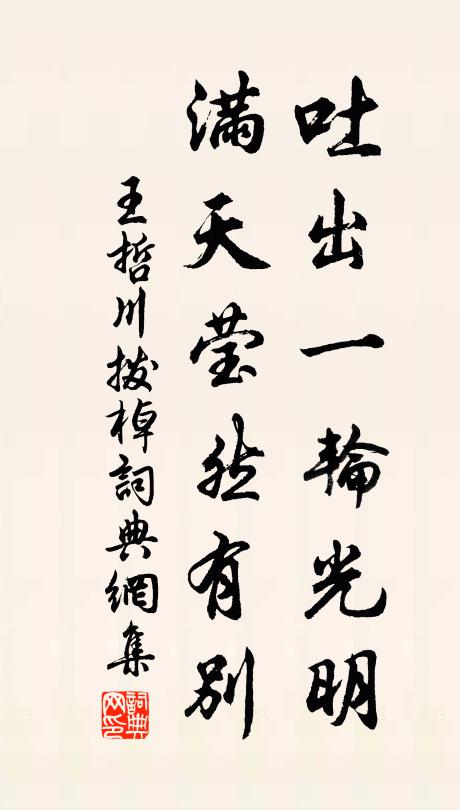 吐出一輪光明
滿天瑩然有別
王哲川撥棹詞典網集
詞典網印